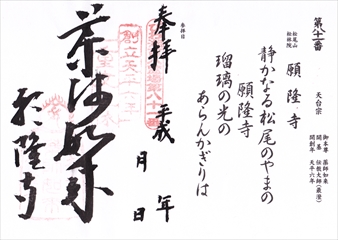 第八十番
松尾山
松林院
願隆寺
天台宗
御本尊 薬師如来
開基 伝教大師(最澄)
開創年 天平六年
静かなる松尾のやまの
願隆寺
瑠璃の光の
あらんかぎりは
参拝日
奉拝
平成 年
月 日
創立天平六年
薬師如来
願隆寺